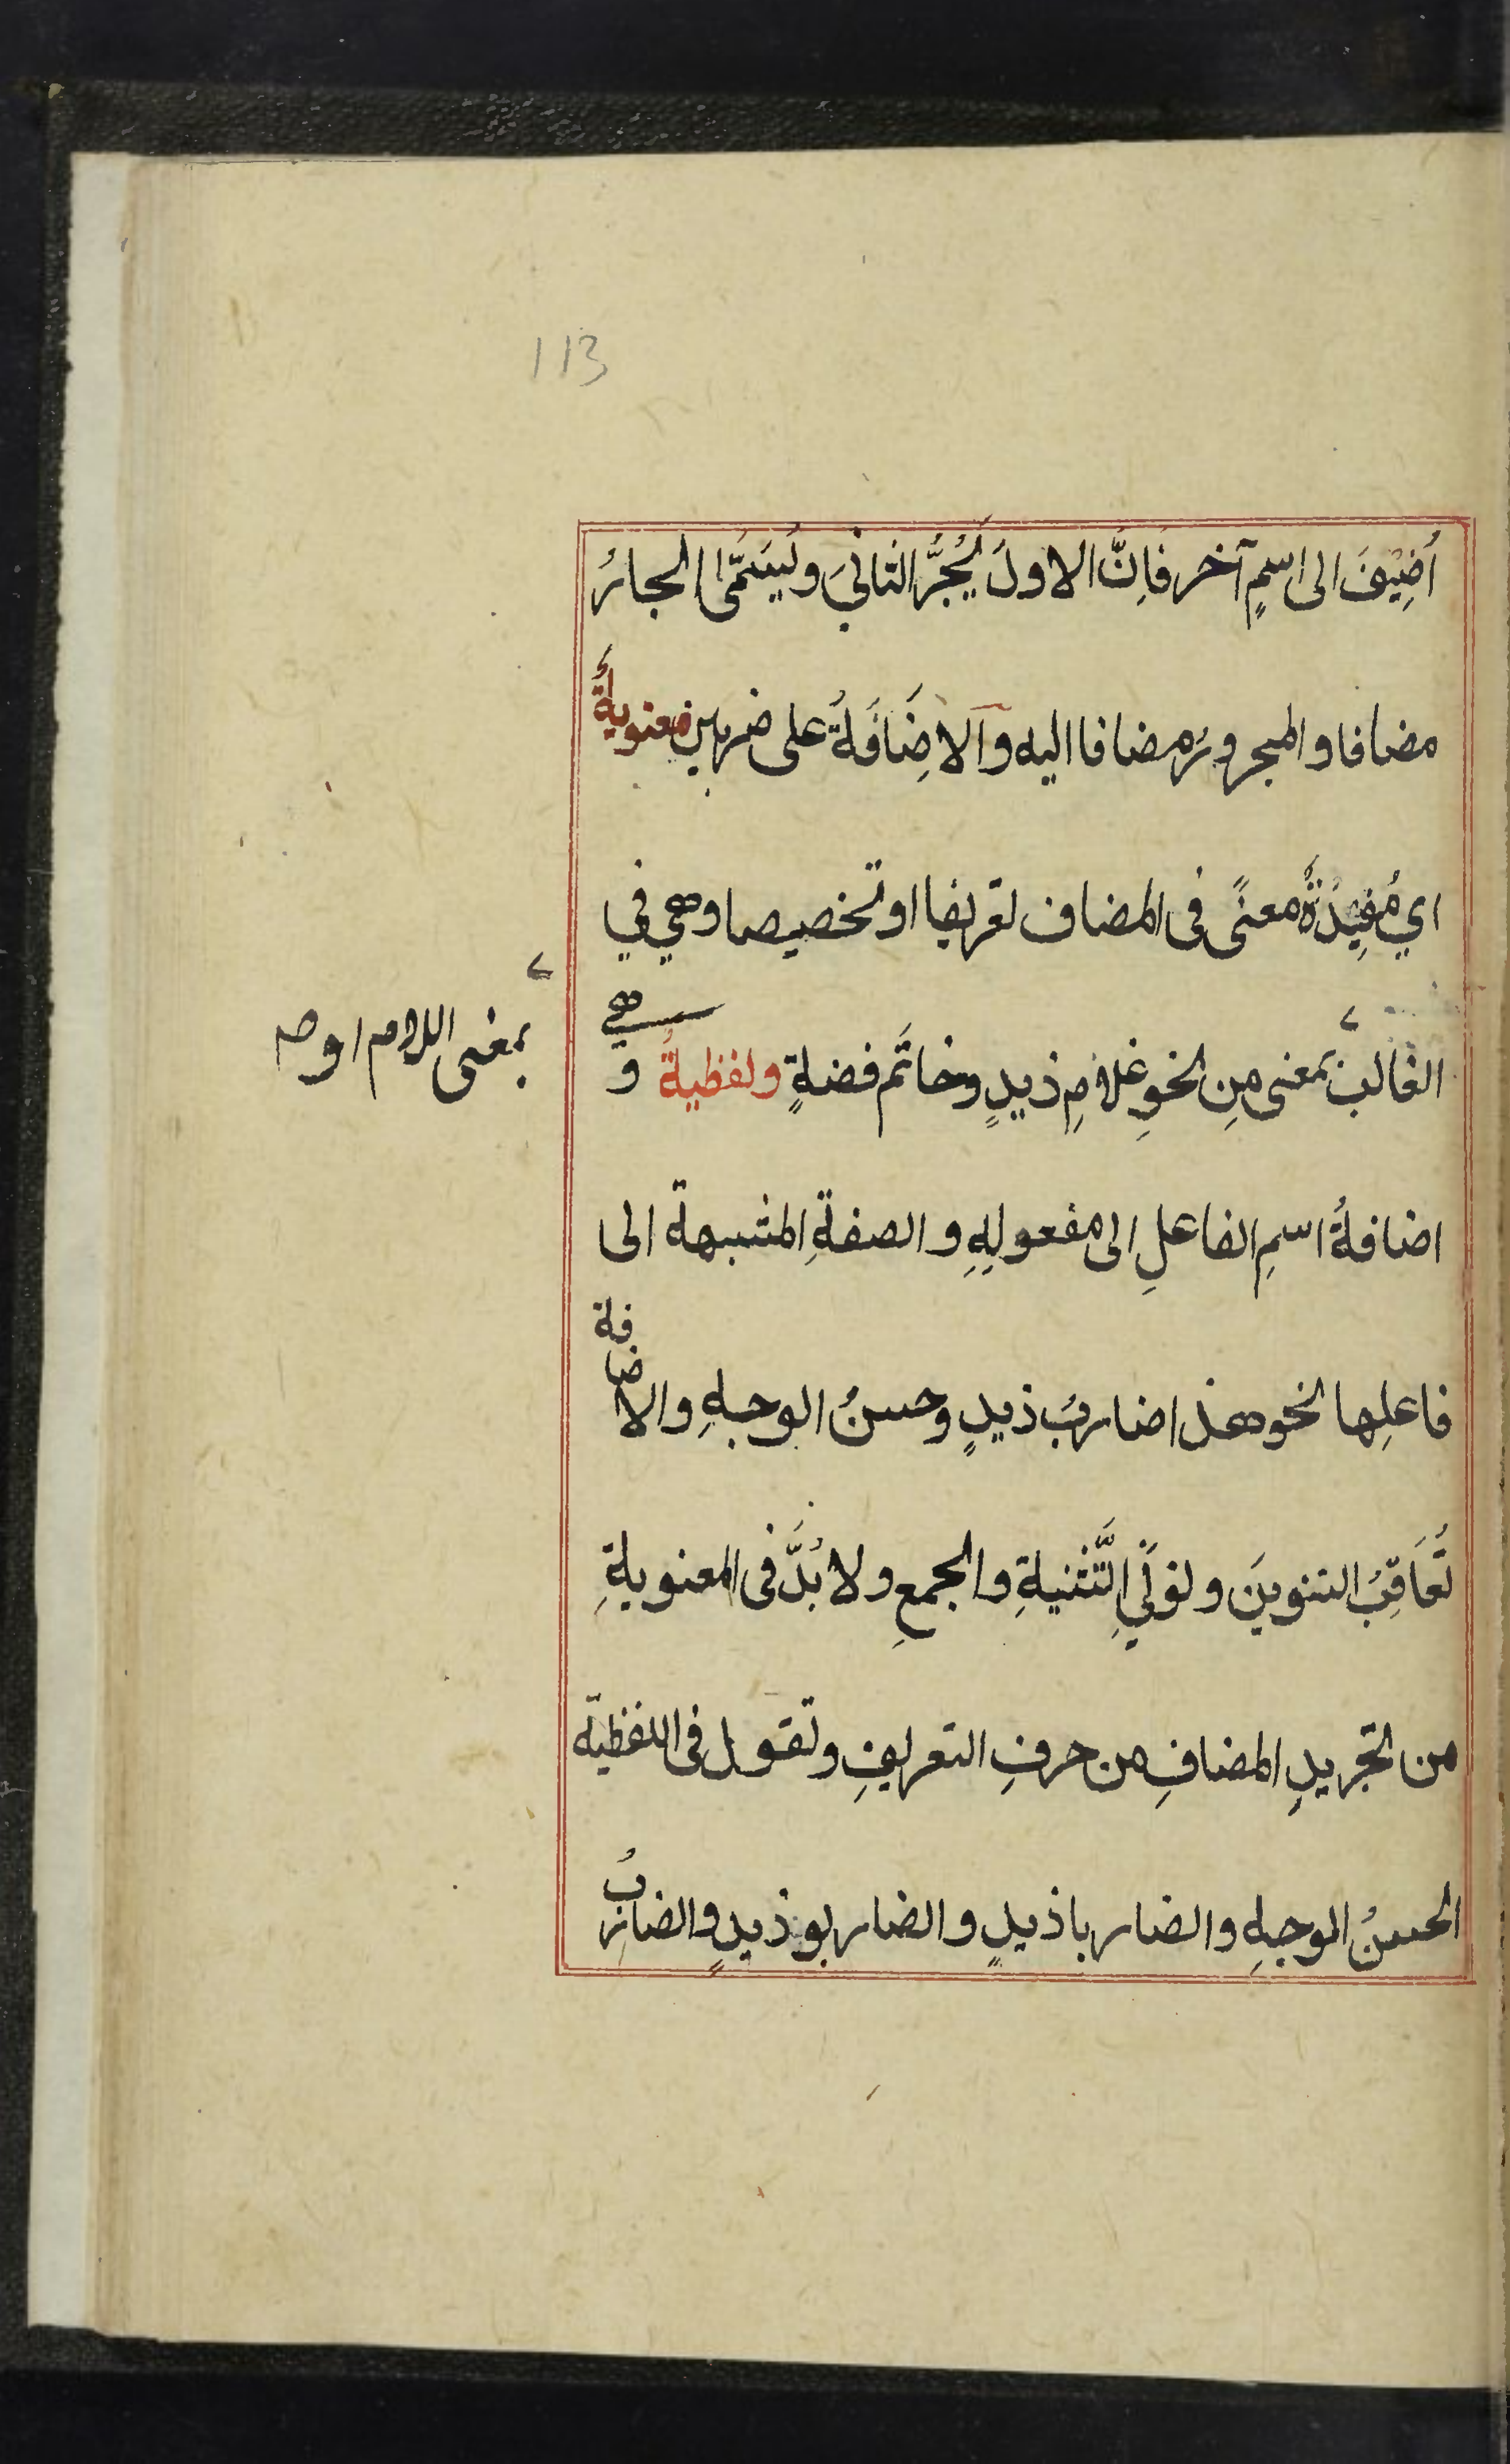 113
اُضِيْفَ الى اسمٍ آخر فَاِنَّ الاولَ يَجُرُّ الثانيَ ويُسَمَّى الجارُ
مضافا والمجرورُ مضافا اليه والاِضَافَةُ على ضربين معنويةٌ
اي مُفِيْدَةٌ معنًى فى المضاف تعريفا او تخصيصا وهي في
الغالب بمعنى مِن نحوِ غلامِ ذيدٍ وخاتَم فضةٍ ولفظيةٌ و هي
بمعنى اللام او
اضافةُ اسمِ الفاعلِ الى مفعولِهِ والصفةِ المشبهة الى
فاعلِها نحو هذا ضاربُ ذيدٍ وحسنُ الوجهِ والاضافة
تُعَاقِبُ التنوينَ ونونَيِ التَّثنيةِ والجمعِ ولا بُدَّ فى المعنويةِ
من تجريدِ المضافِ من حرفِ التعريفِ وتقول فى اللفظية
الحسنُ الوجهِ والضاربا ذيدٍ والضاربو ذيدٍ والضاربُ